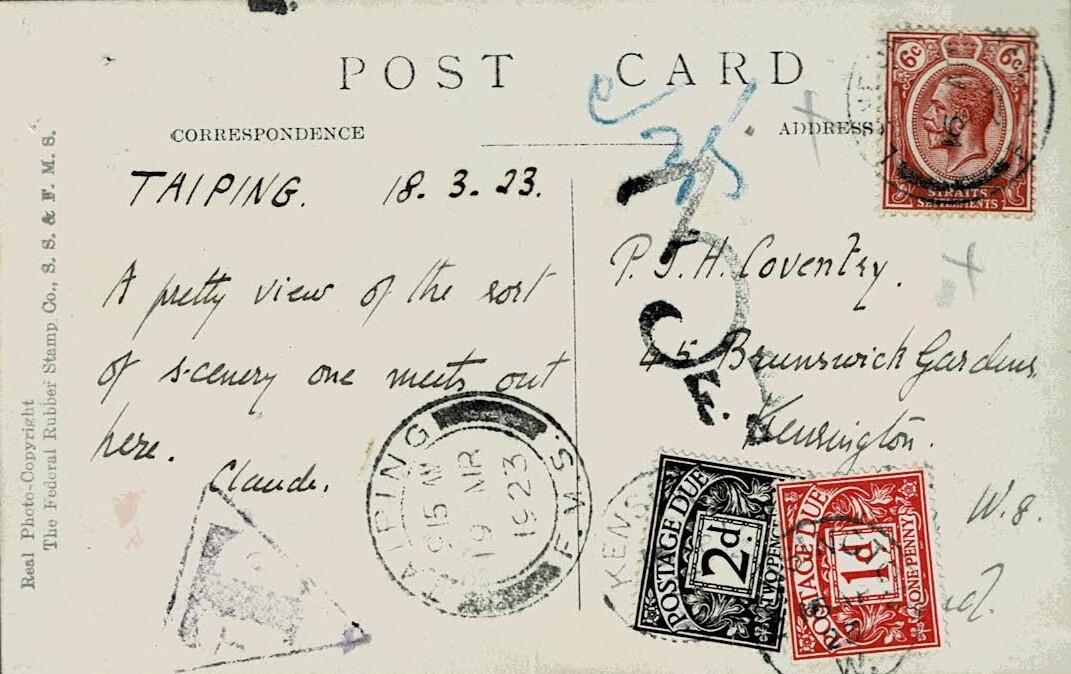 POST CARD
CORRESPONDENCE
ADDRESS
6c 6c
STRAITS
SETTLEMENTS
TAIPING. 18.3.23.
A pretty view of the sort
of scenery one meets out
here.
Claude.
P.J.H. Coventry.
45 Brunswick Gardens
Kensington.
W.8.
3D
F.
TAIPING
915 M
19 MR
1923
F.M.S.
T
KENS
POSTAGE DUE
2d
TWOPENCE
POSTAGE DUE
1d
ONE PENNY
W.
Real Photo-Copyright
The Federal Rubber Stamp Co., S. S. & F. M. S.